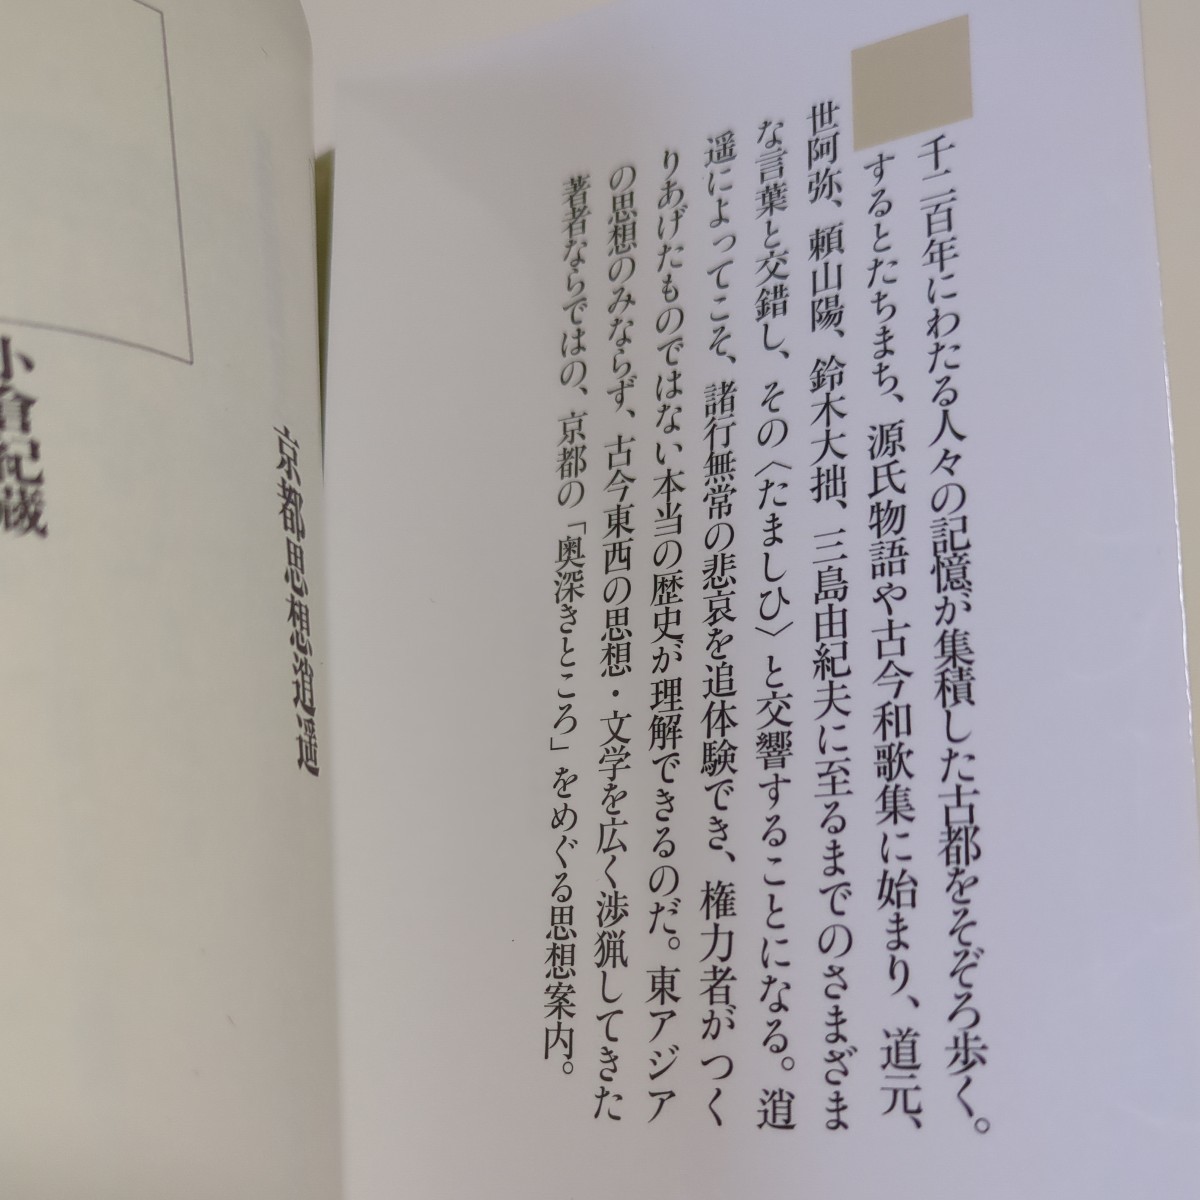 千二百年にわたる人々の記憶が集積した古都をそぞろ歩く。
するとたちまち、源氏物語や古今和歌集に始まり、道元、
世阿弥、頼山陽、鈴木大拙、三島由紀夫に至るまでのさまざま
な言葉と交錯し、その〈たましひ〉と交響することになる。逍
遥によってこそ、諸行無常の悲哀を追体験でき、権力者がつく
りあげたものではない本当の歴史が理解できるのだ。東アジア
の思想のみならず、古今東西の思想・文学を広く渉猟してきた
著者ならではの、京都の「奥深きところ」をめぐる思想案内。
京都思想逍遥
小倉紀蔵